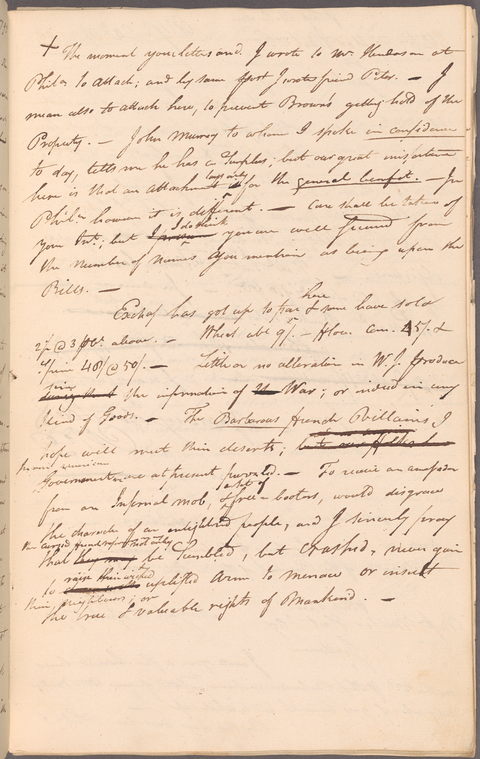 + The moment your letters arrd. I wrote to Mr. Henderson at
Phila. to Attach; and by same post I wrote friend Peter. — I
mean also to attach here, to prevent Browns getting hold of the
Property. — John Murray to whom I spoke in confidence
to day, tells me he has a Surplus; but our great misfortune
here is that an Attachment lays only for the general benefit. — In
Phila. however it is different. — Care shall be taken of
your Int.; but I do think you are well secured from
the number of Names you mention as being upon the
Bills. —
Exchae has got up to par here & some have sold
2 @ 3 above. — Wheat abt 9/. — Flour Com. 45/. &
Sprfine 48/ @ 50/. — Little or no alteration in W. I. Produce
since the information of War; or indeed in any
kind of Goods. — The Barbarous French Villains I
hope will meet their deserts;
Government at present pursued. — To receive
from an Infernal mob, a set of free-booters, would disgrace
the character of an enlightened people, and I sincerely pray
that the cursed french may not only be humbled, but crushed, never again
to raise their uplifted Arm to menace or insult
their neighbours; or
the true & valuable rights of Mankind. —